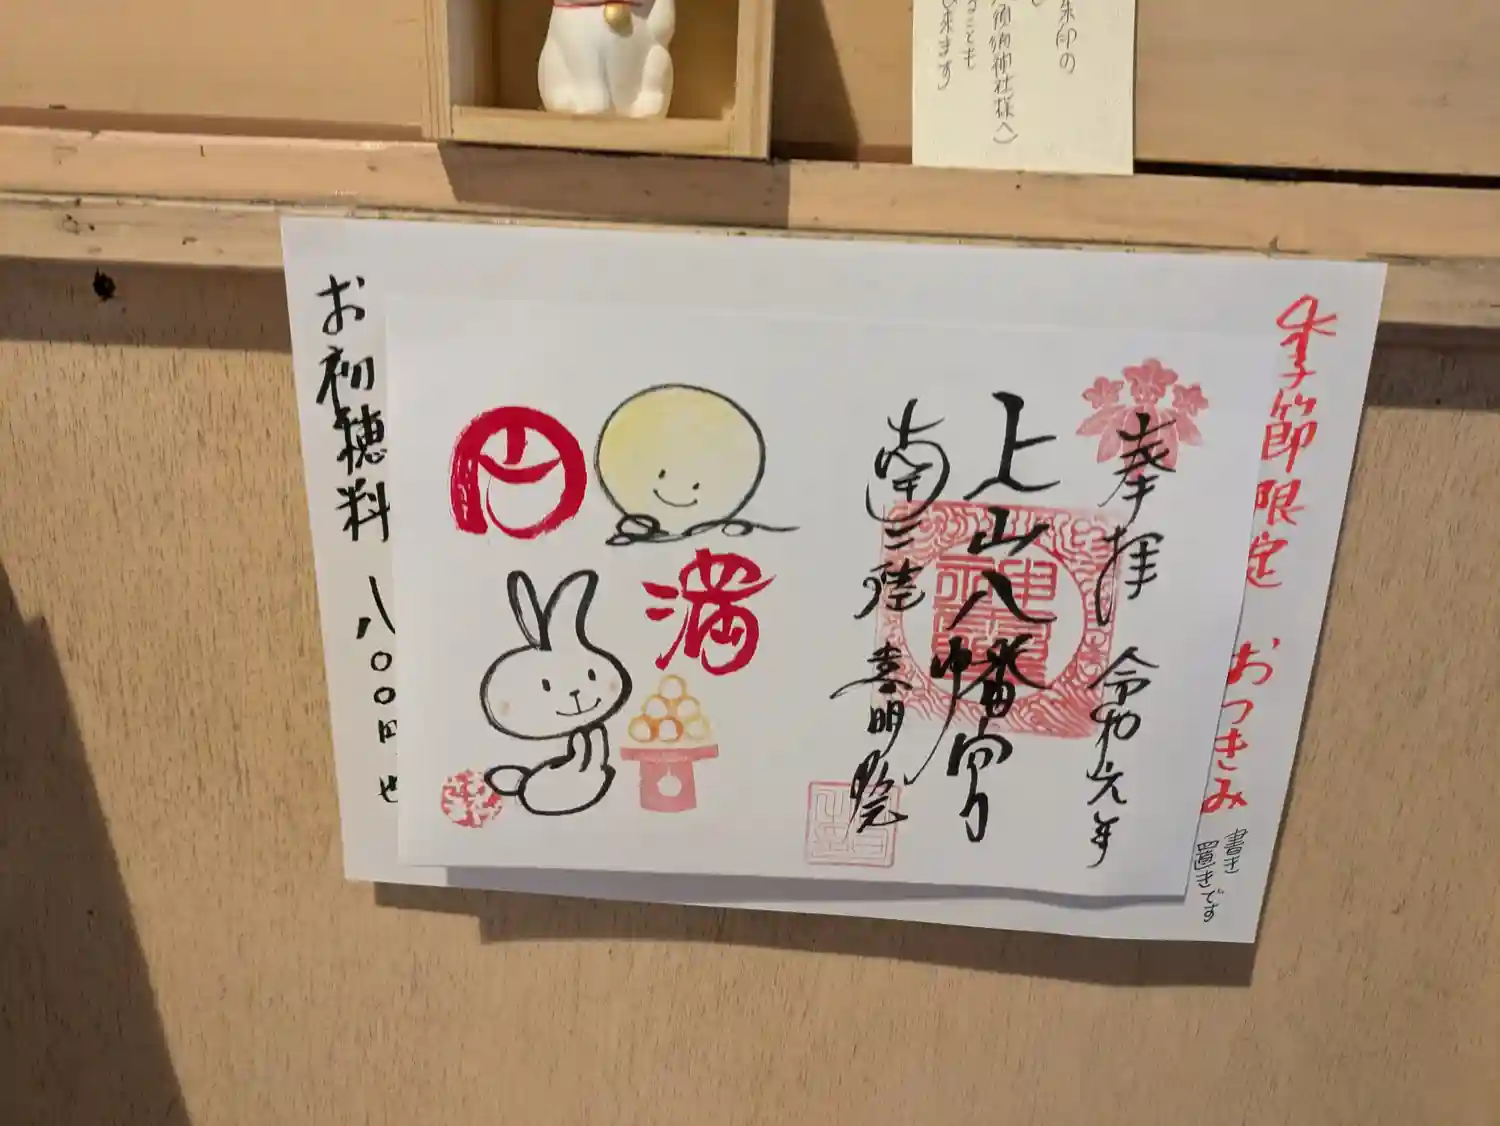 朱印の
須賀神社様へ)
ることも
出来ます
季節限定 おつきみ
書き
置きです
奉拝 令和元年
上山八幡宮
南三陸 喜明院
円
満
お初穂料 八〇〇円也